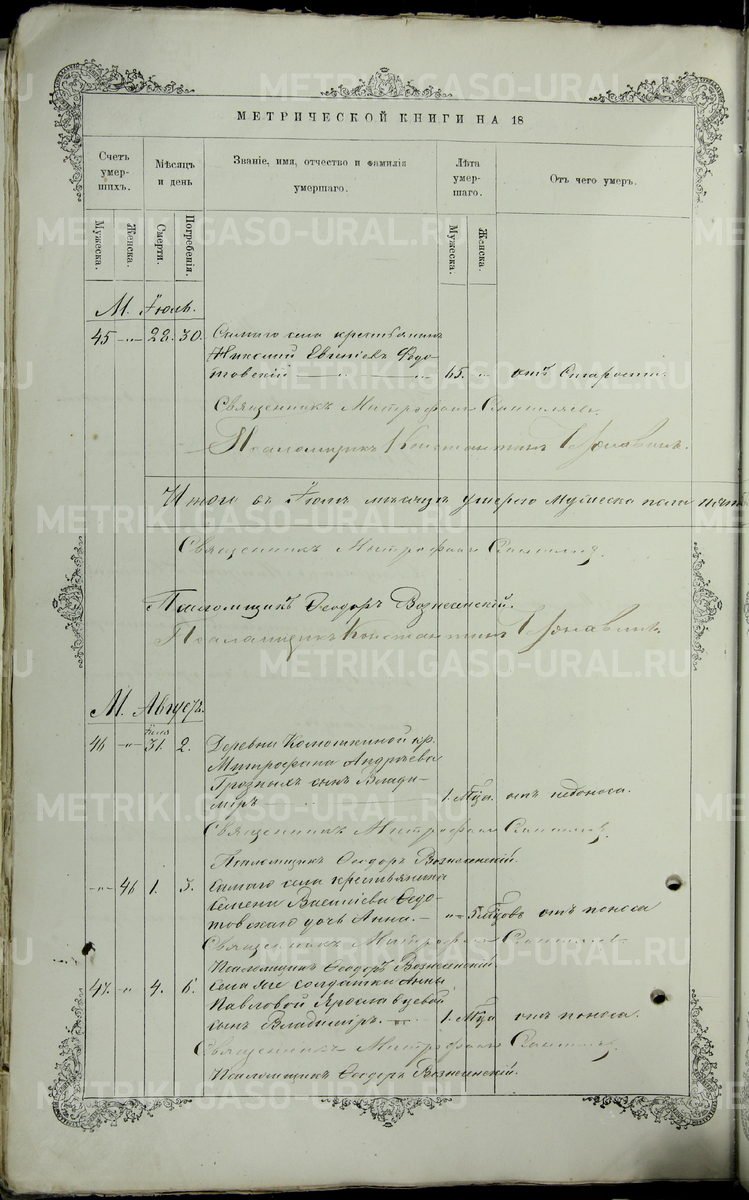 МЕТРИЧЕСКОЙ КНИГИ НА 18
Счетъ умер-шихъ.
Мѣсяцъ и день
Званіе, имя, отчество и фамилія умершаго.
Лѣта умер-шаго.
Отъ чего умеръ.
Мужеска.
Женска.
Смерти.
Погребенія.
Мужеска.
Женска.
М. Іюль.
45 -"- 28. 30. Самаго села крестьянинъ
Николай Федо-
товскій 65. " отъ старости.
Священникъ Митрофанъ
Псаломщикъ Константинъ
Итого въ Іюлѣ мѣсяцѣ умерло мужеска пола
Священникъ Митрофанъ
Псаломщикъ Ѳеодоръ Вознесенскій.
Псаломщикъ Константинъ
М. Августъ.
Іюля
46 -"- 31. 2. Деревни кр.
Митрофана Андреева
Грозныхъ сынъ Влади-
міръ 1. Мца. отъ недоноса.
Священникъ Митрофанъ
Псаломщикъ Ѳеодоръ Вознесенскій.
-"- 46 1. 3. Самаго села крестьянина
Семена Васильева Ѳедо-
товскаго дочь Анна. -"- 5 Мцовъ отъ поноса
Священникъ Митрофанъ
Псаломщикъ Ѳеодоръ Вознесенскій.
47. -"- 4. 6. Села же солдатки Анны
Павловой Ярославцевой
сынъ Владиміръ. 1. Мца отъ поноса.
Священникъ Митрофанъ
Псаломщикъ Ѳеодоръ Вознесенскій.
METRIKI.GASO-URAL.RU